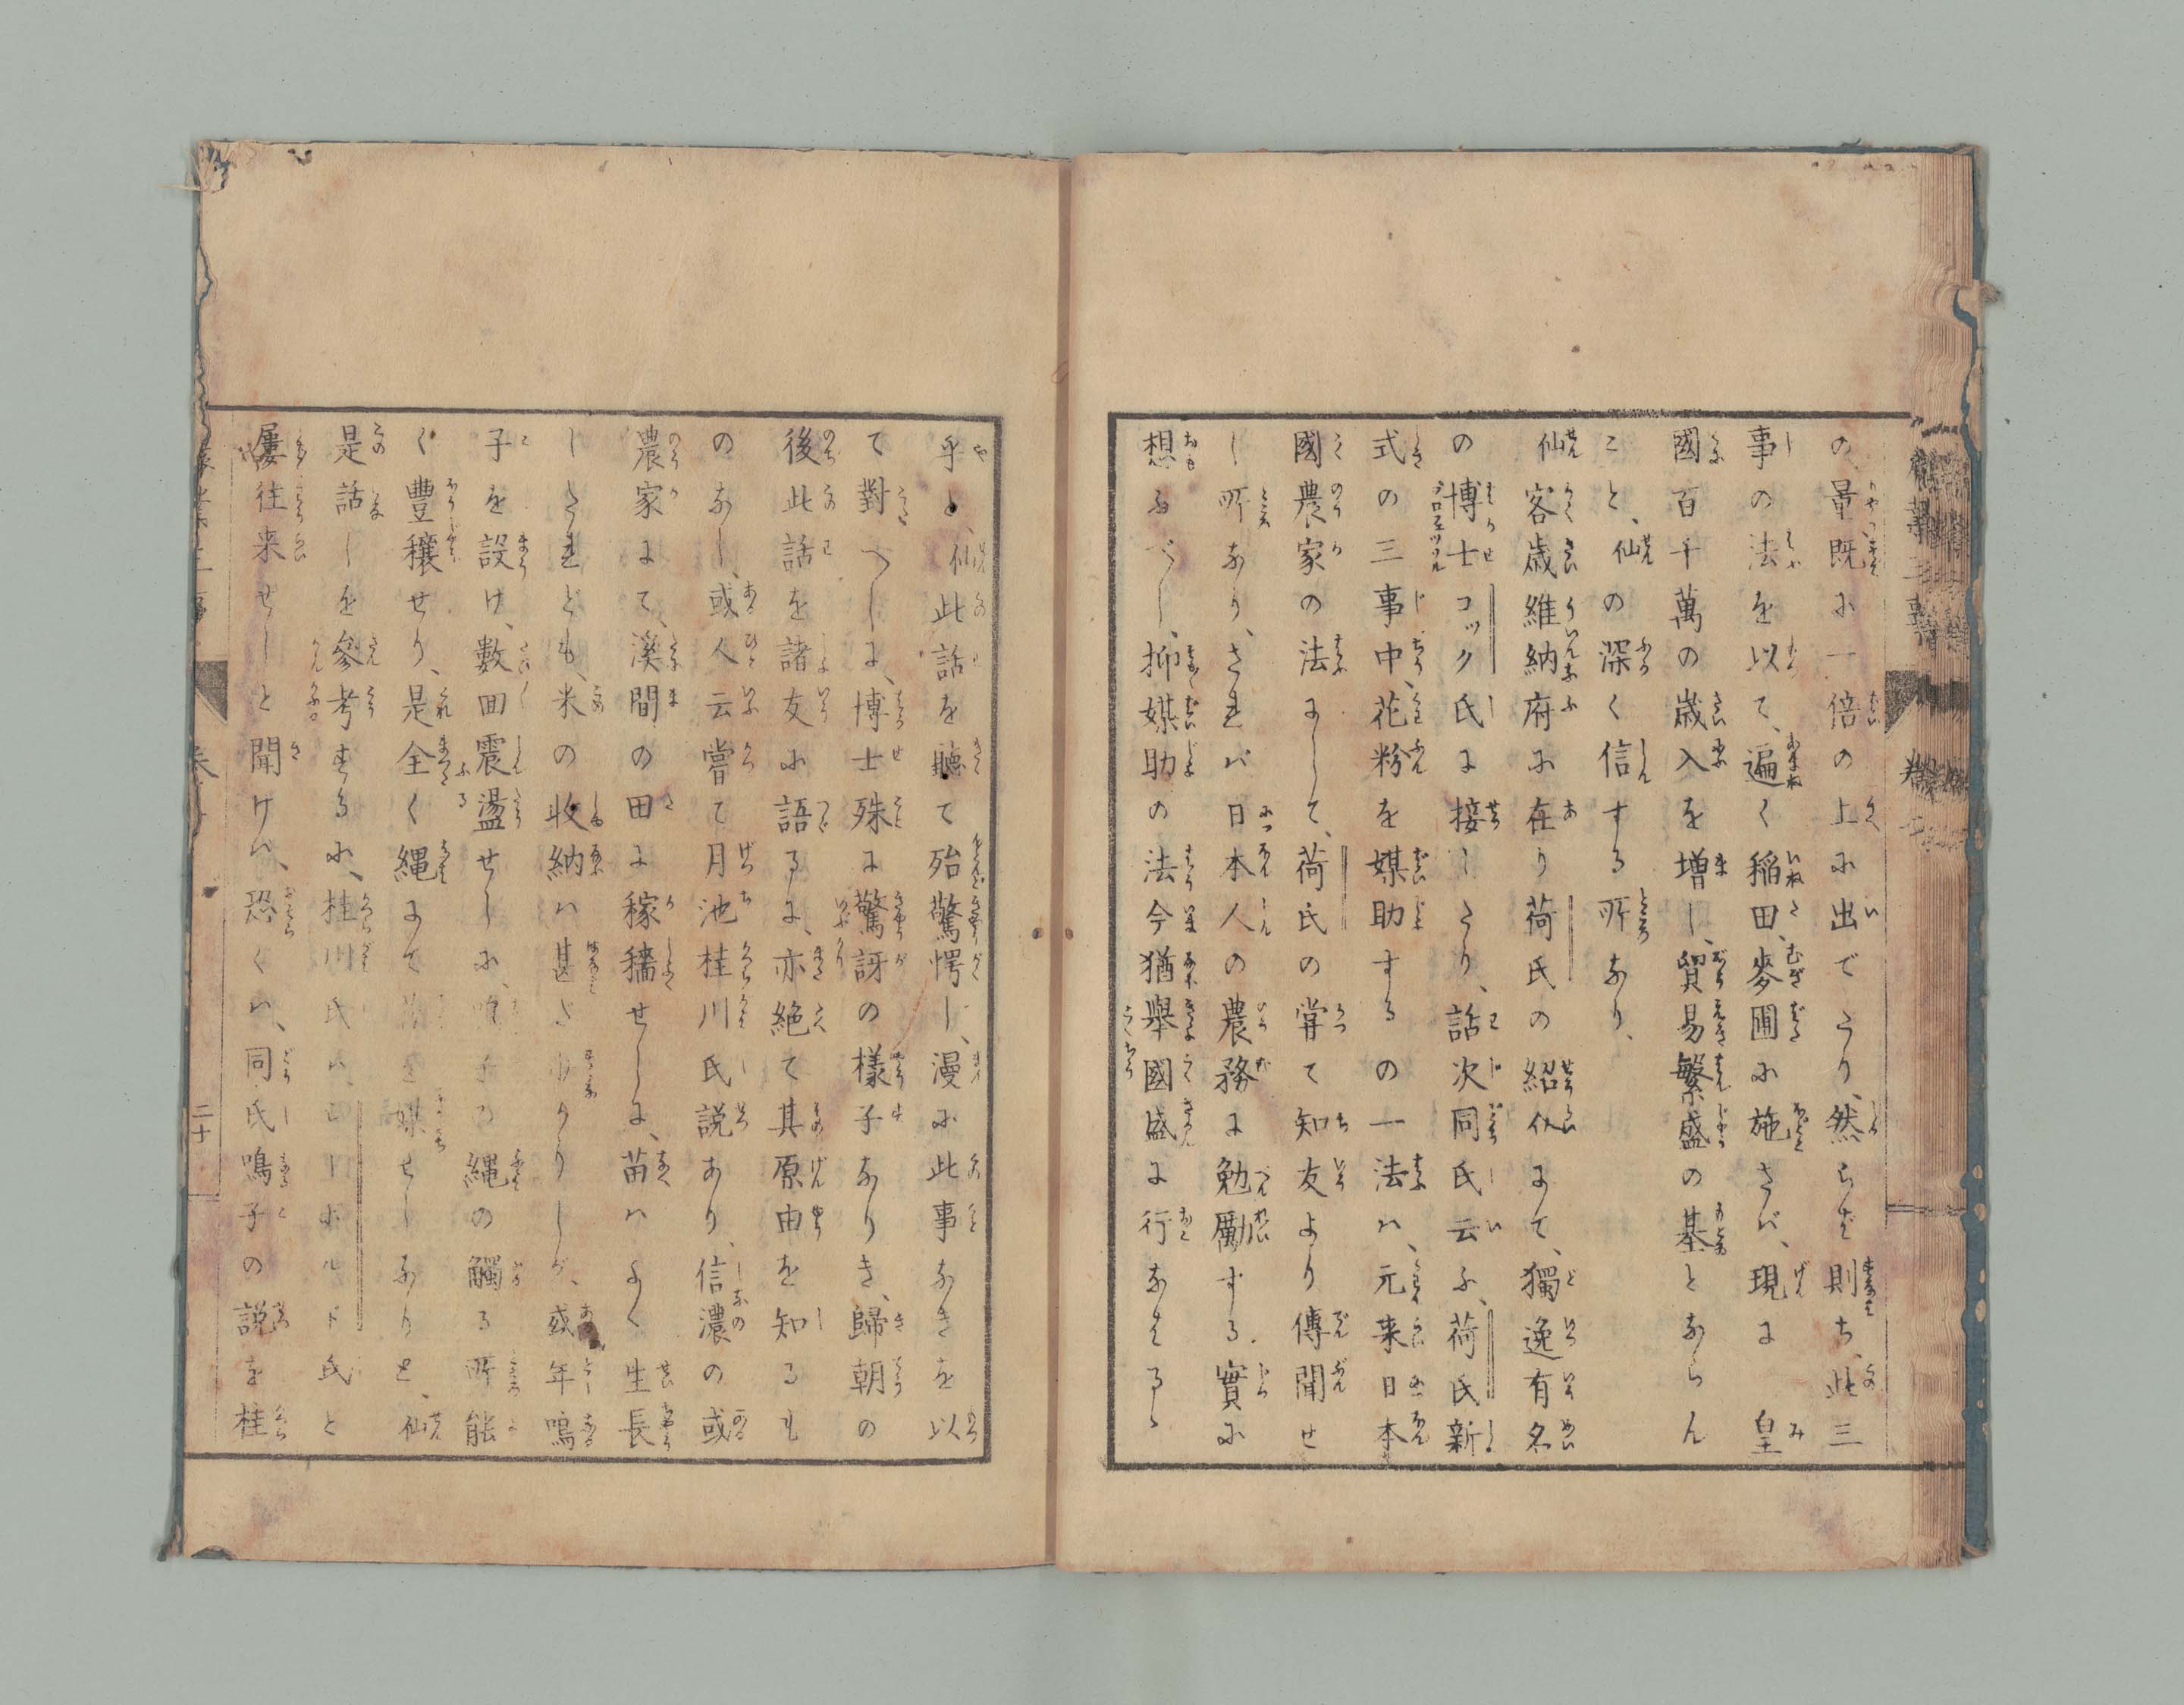 の量既に一倍の上に出でたり、然らば則ち、此三
事の法を以て、遍く稲田、麥圃に施さば、現に　皇
國百千萬の歳入を増し、貿易繁盛の基とあらん
こと、仙の深く信する所なり、
仙客歳維納府に在り荷氏の紹介にて、獨逸有名
の博士コック氏に接したり、話次同氏云ふ、荷氏新
式の三事中、花粉を媒助するの一法ハ、元来日本
國農家の法にして、荷氏の甞て知友より傳聞せ
し所なり、されバ日本人の農務に勉勵する實に
想ふべし、抑媒助の法今猶舉國盛に行なはるゝ
乎と、仙此話を聽て殆驚愕し、漫に此事なきを以
て對へしに、博士殊に驚訝の様子なりき、歸朝の
後此話を諸友に語るに、亦絶て其原由を知るも
のなし、或人云嘗て月池桂川氏説あり、信濃の或
農家にて、溪間の田に稼穡せしに、苗ハよく生長
したれども、米の收納ハ甚さ少かりしが、或年鳴
子を設け、數回震盪せしに、鳴子の縄の觸る所能
く豐穰せり、是全く縄にて花粉を媒せしなりと、仙
是話しを參考するに、桂川氏ハ、シーボルド氏と
屢往来せしと聞けハ、恐くハ、同氏鳴子の説を桂
二十